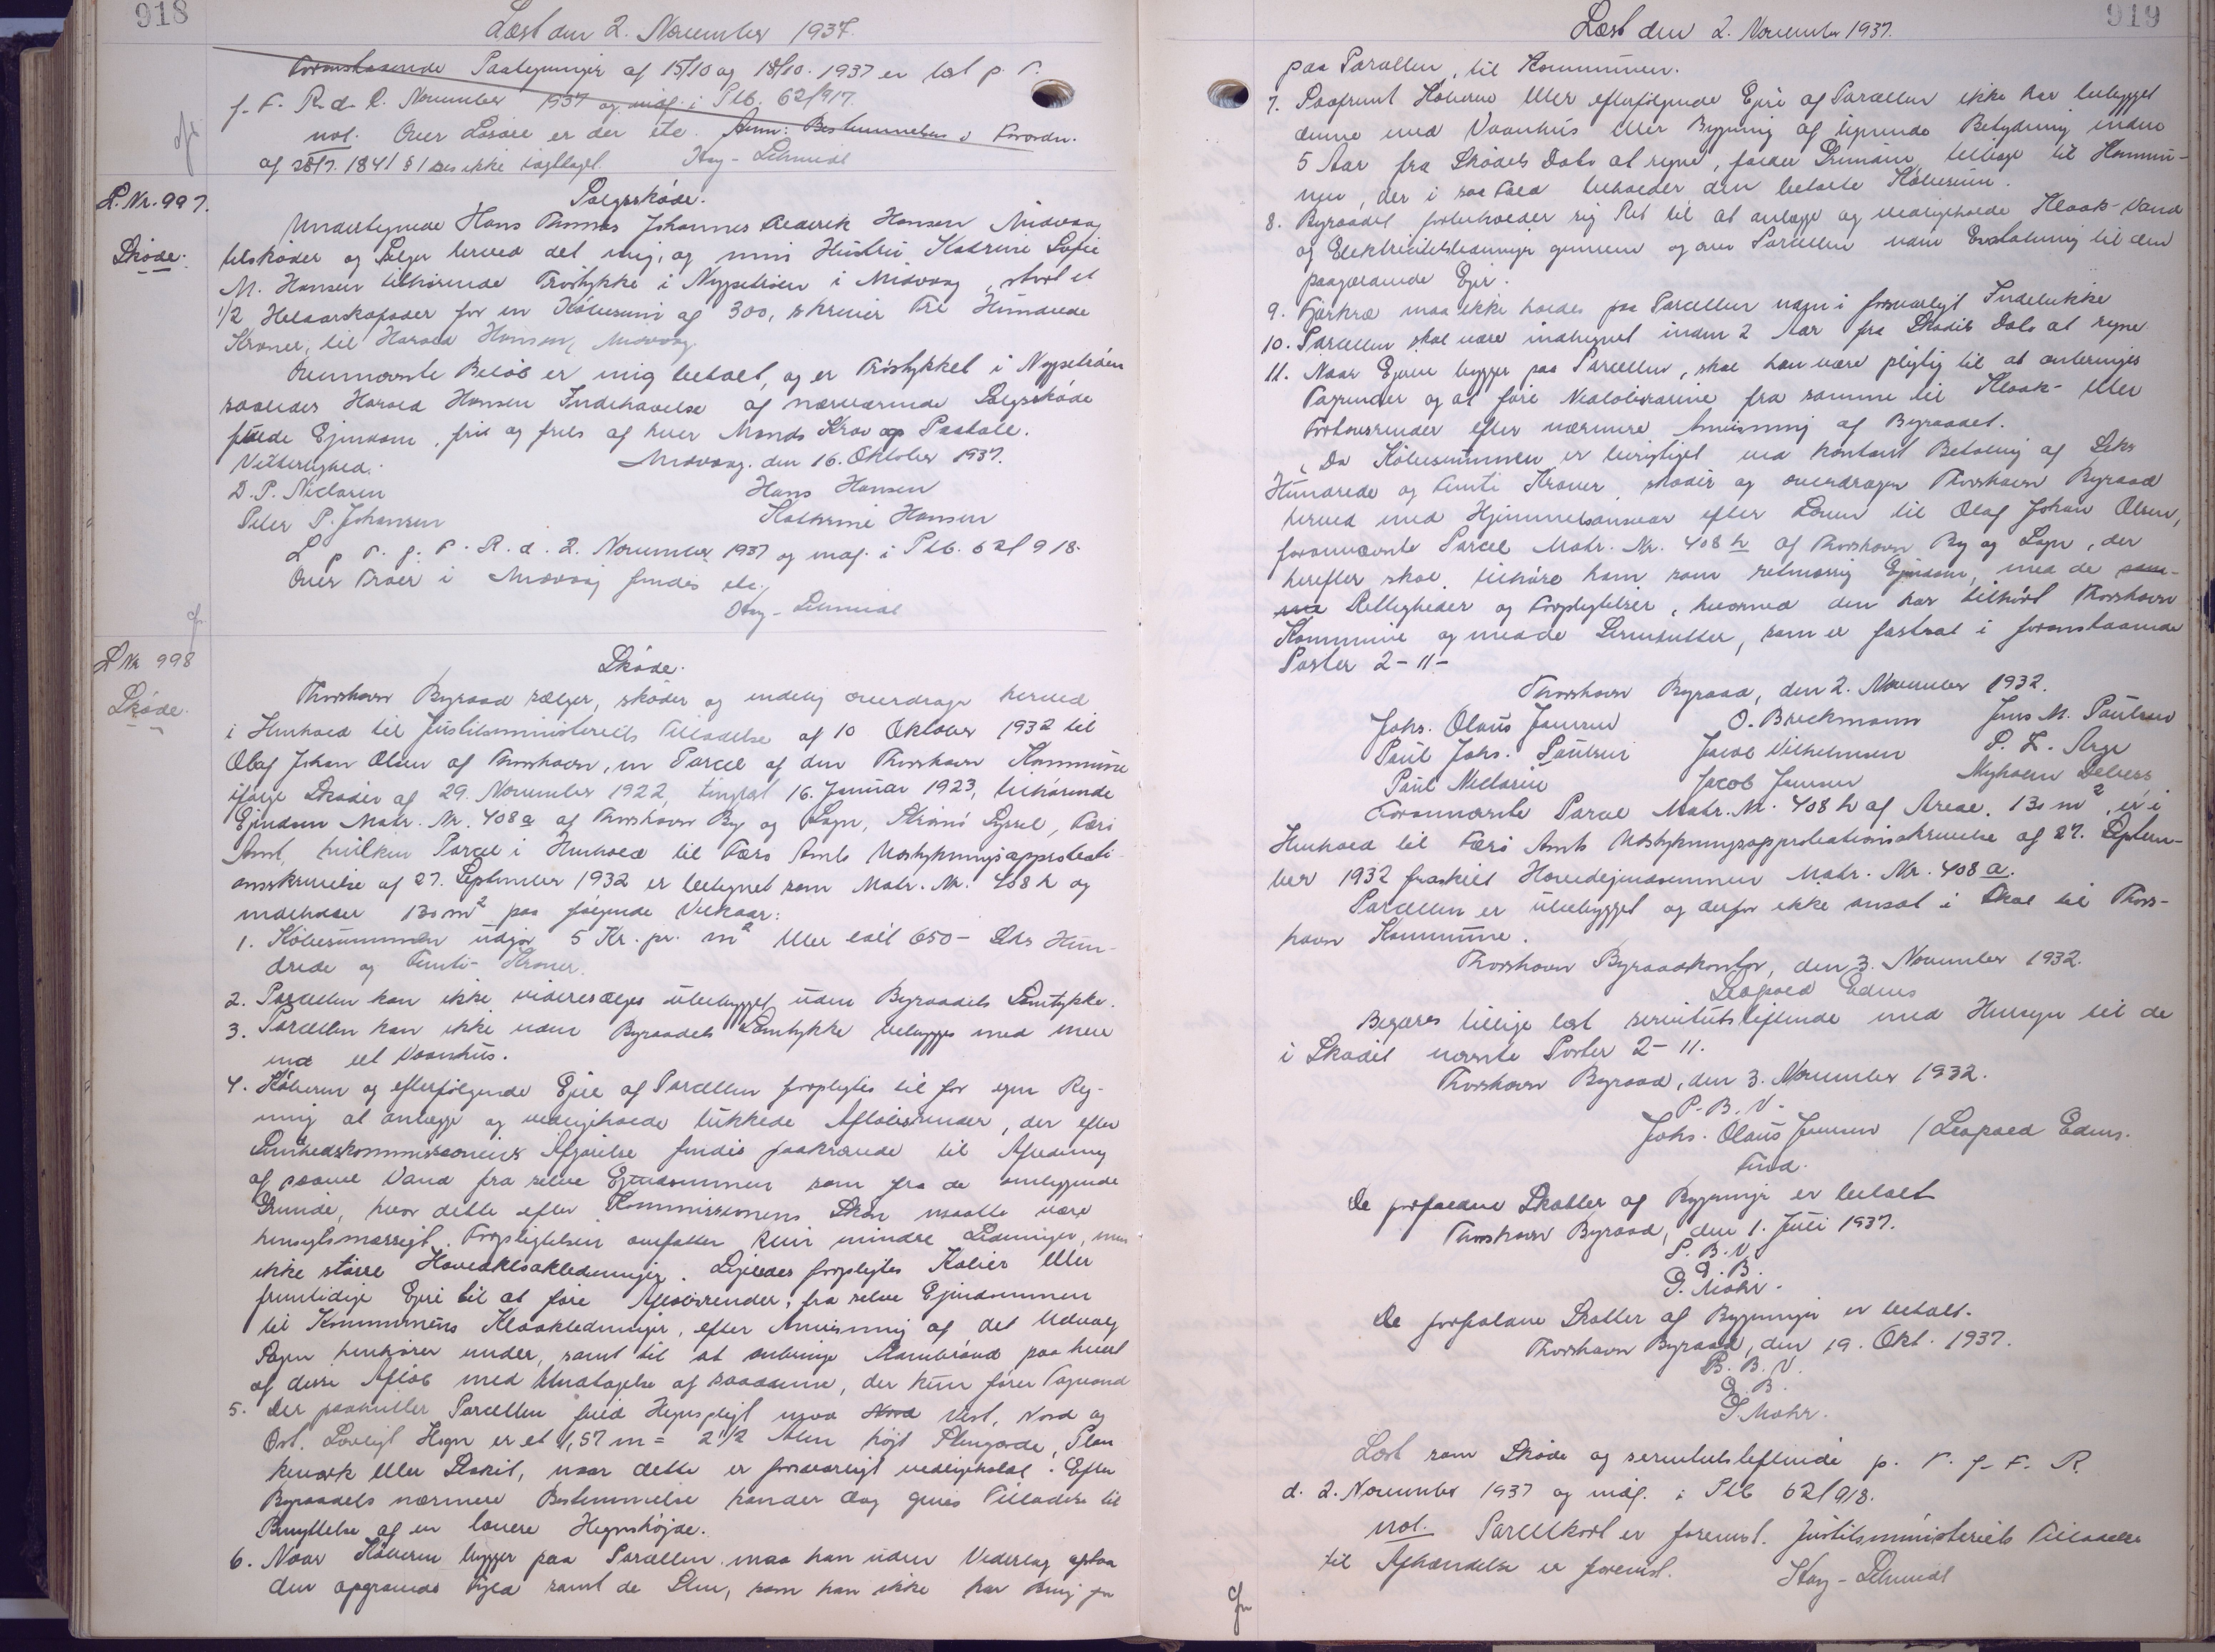 918
Læst den 2. November 1937.
Foranstaaende Paategninger af 15/10 og 18/10. 1937 er læst p. V.
f. F. R. d. 2. November 1937 og indf. i Ptb. 62/917.
not. Over Løsøre er der etc. Anm: Bestemmelsen i Forordn.
af 28/7. 1841 § 1 ses ikke iagttaget. Hay-Schmidt
L. Nr. 997.
Skøde.
Salgsskøde.
Undertegnede Hans Thomas Johannes Rederik Hansen Midvaag
tilskøder og Sælger herved det mig, og min Hustru Katrine Sofie
M. Hansen tilhørende Tröstykke i Nypetröen i Midvaag, stort et
1/2 Helaarskofoder for en Købesum af 300, skriver Tre Hundrede
Kroner, til Harald Hansen, Midvaag
Ovennævnte Beløb er mig betalt, og er Tröstykket i Nypetröen
saaledes Harald Hansen Indehavelse af nærværende Salgsskøde
fulde Ejendom, fri og frels af hver Mands Krav og Paatale.
Vitterlighed: Midvaag. den 16. Oktober 1937.
D. P. Niclasen Hans Hansen
Peter P. Johansen Kathrine Hansen
L. p. V. f. F. R. d. 2. November 1937 og indf. i Ptb. 62/918.
Over Trøer i Midvaag findes etc.
Hay-Schmidt
L Nr 998
Skøde.
Skøde.
Thorshavn Byraad sælger, skøder og endelig overdrager herved
i Henhold til Justitsministeriets Tilladelse af 10 Oktober 1932 til
Olaf Johan Olsen af Thorshavn, en Parcel af den Thorshavn Kommune
ifølge Skøder af 29. November 1922, tinglæst 16. Januar 1923, tilhørende
Ejendom Matr. Nr. 408a af Thorshavn By og Sogn, Strømø Syssel, Færø
Amt, hvilken Parcel i Henhold til Færø Amts Udstykningsapprobati-
onsskrivelse af 27. September 1932 er betegnet som Matr. Nr. 408 h og
indeholder 130 m2 paa følgende Vilkaar:
1. Købesummen udgør 5 Kr. pr. m2 eller ialt 650 - Seks Hun-
drede og Femti - Kroner.
2. Parcellen kan ikke videresælges ubebygget uden Byraadets Samtykke.
3. Parcellen kan ikke uden Byraadets Samtykke bebygges med mere
end eet Vaanhus.
4. Køberen og efterfølgende Ejere af Parcellen forpligtes til for egen Reg-
ning at anlægge og vedligeholde lukkede Afløbsrender, der efter
Sundhedskommissionens Afgørelse findes paakrævede til Afledning
af saavel Vand fra selve Ejendommen som fra de omliggende
Grunde, hvor dette efter Kommissionens Skøn maatte være
hensigtsmæssigt. Forpligtelsen omfatter kun mindre Ledninger, men
ikke større Hovedkloakledninger. Ligeledes forpligtes Køber eller
fremtidige Ejere til at føre Afløbsrender, fra selve Ejendommen
til Kommunens Kloakledninger, efter Anvisning af det Udvalg
Sagen henhører under, samt til at anbringe Slambrønd paa hvert
af disse Afløb med Undtagelse af saadanne, der kun fører Tagvand
5. Der paahviler Parcellen fuld Hegnspligt mod Nord Vest, Nord og
Øst. Lovligt Hegn er et 1,57 m = 2 1/2 Alen højt Stengærde, Plan-
keværk eller Stakit, naar dette er forsvarligt vedligeholdt. Efter
Byraadets nærmere Bestemmelse kander dog gives Tilladelse til
Benyttelse af en lavere Hegnshøjde.
6. Naar Køberen bygger paa Parcellen maa han uden Vederlag opføre
den opgravede Fyld samt de Sten, som han ikke har Brug for
919
Læst den 2. November 1937.
paa Parcellen, til Kommunen.
7. Saafremt Køberen eller efterfølgende Ejere af Parcellen ikke har bebygget
denne med Vaanhus eller Bygning af lignende Betydning inden
5 Aar fra Skødets Dato at regne, falder Grunden tilbage til Kommu-
nen, der i saa Fald beholder den betalte Købesum.
8. Byraadet forbeholder sig Ret til at anlægge og vedligeholde Kloak- Vand
og Elektricitetsledninger gennem og over Parcellen uden Erstatning til den
paagældende Ejer.
9. Fjerkræ maa ikke holdes paa Parcellen uden i forsvarligt Indelukke
10. Parcellen skal være indhegnet inden 2 Aar fra Skødets Dato at regne
11. Naar Ejeren bygger paa Parcellen, skal han være pligtig til at anbringes
Tagrender og at føre Nedløbsrørene fra samme til Kloak- eller
Fortovsrender efter nærmere Anvisning af Byraadet.
Da Købesummen er berigtiget ved kontant Betaling af Seks
Hundrede og Femti Kroner, skøder og overdrager Thorshavn Byraad
herved med Hjemmelsansvar efter Loven til Olaf Johan Olsen,
forannævnte Parcel Matr. Nr. 408 h af Thorshavn By og Sogn, der
herefter skal tilhøre ham som retmæssig Ejendom, med de sam-
me Rettigheder og Forpligtelser, hvormed den har tilhørt Thorshavn
Kommune og med de Servitutter, som er fastsat i foranstaaende
Poster 2-11-
Thorshavn Byraad, den 2. November 1932.
Johs. Olaus Jensen O. Breckmann Jens M. Poulsen
Poul Johs. Poulsen Jacob Vilhelmsen P. L. Arge
Poul Niclasen Jacob Jensen Nyholm Debess
Forannævnte Parcel Matr. Nr. 408 h af Areal. 130 m2, er i
Henhold til Færø Amts Udstykningsapprobationsskrivelse af 27. Septem-
ber 1932 fraskilt Hovedejendommen Matr. Nr. 408 a.
Parcellen er ubebygget og derfor ikke ansat i Skat til Thors-
havn Kommune.
Thorshavn Byraadskontor, den 3. November 1932.
Leopold Edens
Begæres tillige læst servitutstiftende med Hensyn til de
i Skødet nævnte Poster 2-11.
Thorshavn Byraad, den 3. November 1932.
P. B. V.
Johs. Olaus Jensen / Leopold Edens.
Fmd.
De forfaldne Skatter af Bygninger er betalt
Thorshavn Byraad, den 1. Juli 1937.
P. B. V.
E. B.
D. Mohr.
De forfaldne Skatter af Bygninger er betalt.
Thorshavn Byraad, den 19. Okt. 1937.
P. B. V.
E. B.
D Mohr.
Læst som Skøde og servitutstiftende p. V. f. F. R.
d. 2. November 1937 og indf. i Ptb 62/918.
not. Parcelkort er forevist. Justitsministeriets Tilladelse
til Afhændelse er forevist. Hay-Schmidt